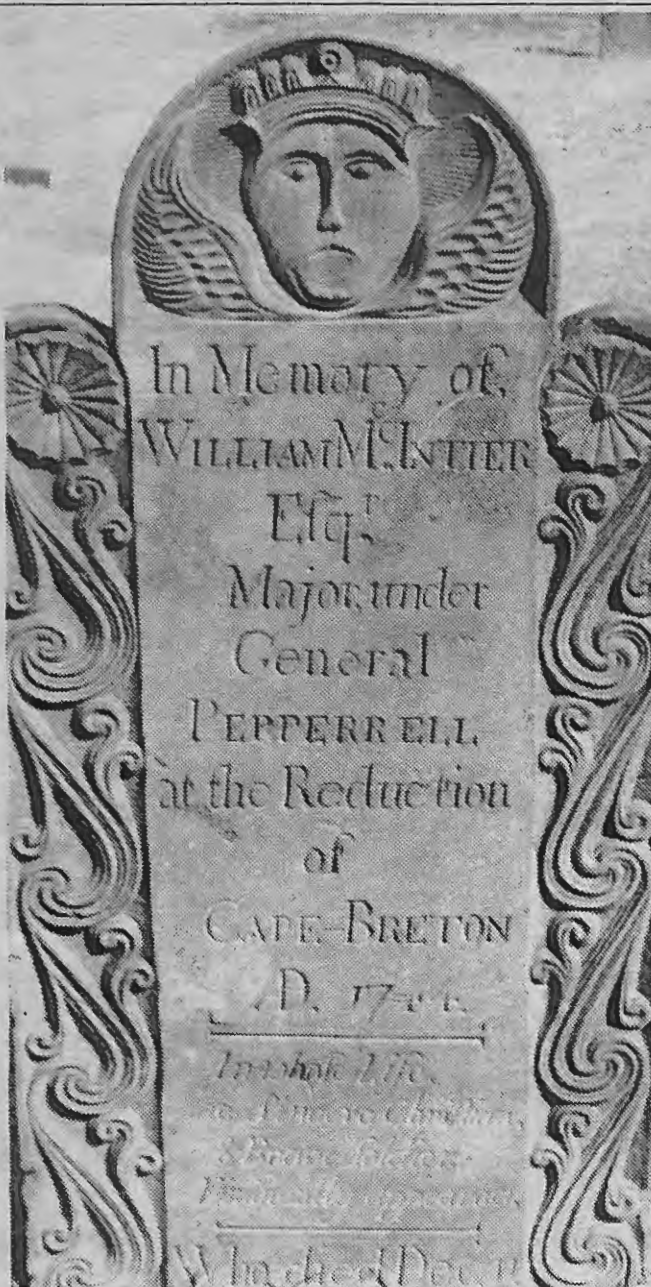 In Memory of,
WILLIAM Mc.INTIER
Eſqr.
Major, under
General
PEPPERRELL
at the Reduction
of
CAPE-BRETON
AD. 17
In whoſe Life,
a Sincere Chriſtian,
& Brave
appeared.
Who died Dec